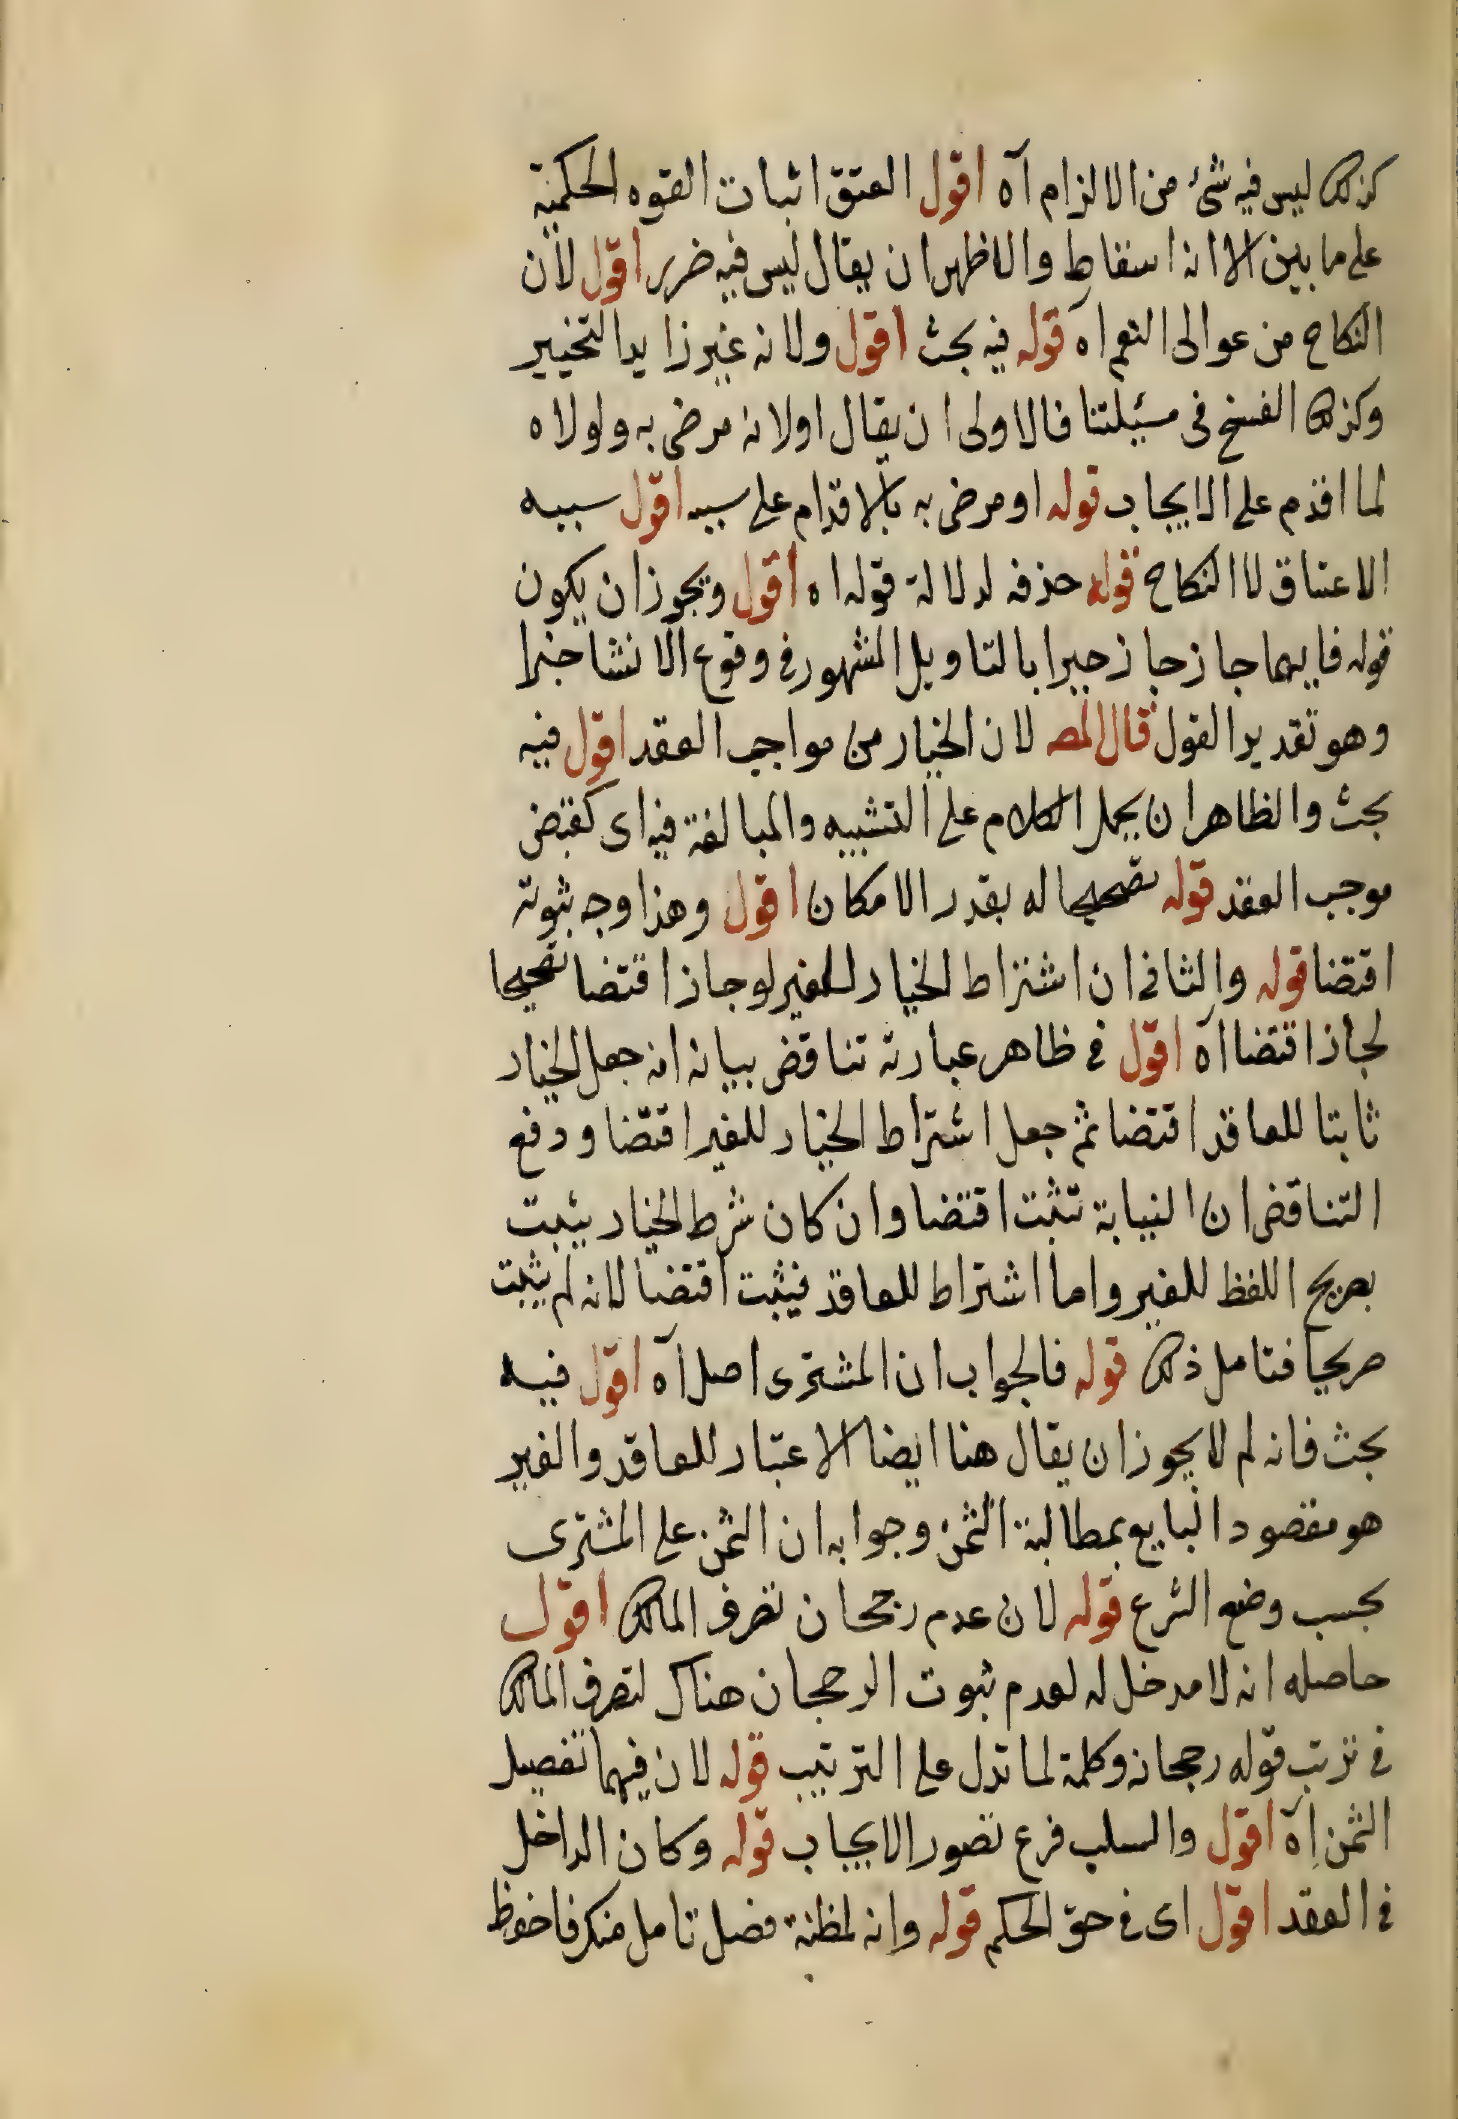 كذلك ليس فيه شئ من الالزام آه اقول العتق اثبات القوه الحكمية
على ما بين الا انه اسقاط والاظهر ان يقال ليس فيه ضرر اقول لان
النكاح من عوالى النعم اه قوله فيه بحث اقول ولانه غير زايد التخيير
وكذلك الفسخ فى مسئلتنا فالاولى ان يقال اولانه مرضى به ولولاه
لما اقدم على الايجاب قوله او مرضى به بالاقدام على سببه اقول سببه
الاعتاق لا النكاح قوله حذفه لدلالة قوله اه اقول ويجوز ان يكون
قوله فايهما جاز جاز خبرا بالتاويل المشهور فى وقوع الانشا خبرا
وهو تقدير القول قال المص لان الخيار من مواجب العقد اقول فيه
بحث والظاهر ان يحمل الكلام على التشبيه والمبالغة فيه اى كقبض
موجب العقد قوله تصحيحا له بقدر الامكان اقول وهذا وجه ثبوته
اقتضا قوله والثانى ان اشتراط الخيار للغير لو جاز اقتضا تصحيحا
لجاز اقتضا اه اقول فى ظاهر عبارته تناقض بيانه انه جعل الخيار
ثابتا للعاقد اقتضا ثم جعل اشتراط الخيار للغير اقتضا ودفع
التناقض ان النيابة تثبت اقتضا وان كان شرط الخيار يثبت
بصريح اللفظ للغير واما اشتراط للعاقد فيثبت اقتضا لانه لم يثبت
صريحا فتامل ذلك قوله فالجواب ان المشترى اصل آه اقول فيه
بحث فانه لم لا يجوز ان يقال هنا ايضا الاعتبار للعاقد والغير
هو مقصود البايع بمطالبة الثمن وجوابه ان الثمن على المشترى
بحسب وضع الشرع قوله لان عدم رجحان تصرف المالك اقول
حاصله انه لا مدخل له لعدم ثبوت الرجحان هناك لتصرف المالك
فى ترتب قوله رجحانه وكلمة لما تدل على الترتيب قوله لان فيهما تفصيل
الثمن اه اقول والسلب فرع تصور الايجاب قوله وكان الداخل
فى العقد اقول اى فى حق الحكم قوله وانه لمظنة فضل تامل منكر فاحفظ